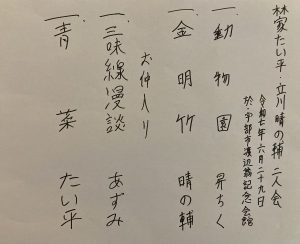 林家たい平・立川晴の輔 二人会
令和七年六月二十九日
於・宇部市渡辺翁記念会館
一.動物園 昇ちく
一.金明竹 晴の輔
お仲入り
一.三味線漫談 あずみ
一.青菜 たい平